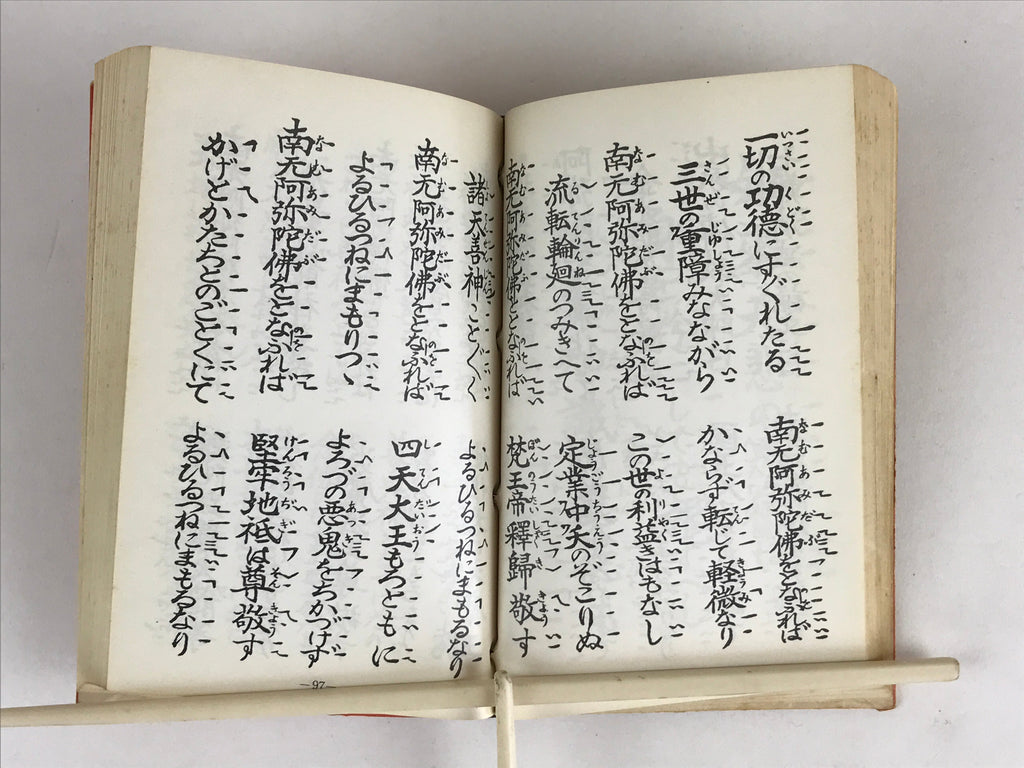 一切の功德にすぐれたる
南无阿弥陀佛をとなふれば
三世の重障みなながら
かならず転じて軽微なり
南无阿弥陀佛をとなふれば
この世の利益きはもなし
流転輪廻のつみきへて
定業中夭のぞこりぬ
南无阿弥陀佛をとなふれば
梵王帝釋歸敬す
諸天善神ことごとく
よるひるつねにまもるなり
南无阿弥陀佛をとなふれば
四天大王もろともに
よるひるつねにまもりつゝ
よろづの悪鬼をちかづけず
南无阿弥陀佛をとなふれば
堅牢地祇は尊敬す
かげとかたちとのごとくにて
よるひるつねにまもるなり
—97—